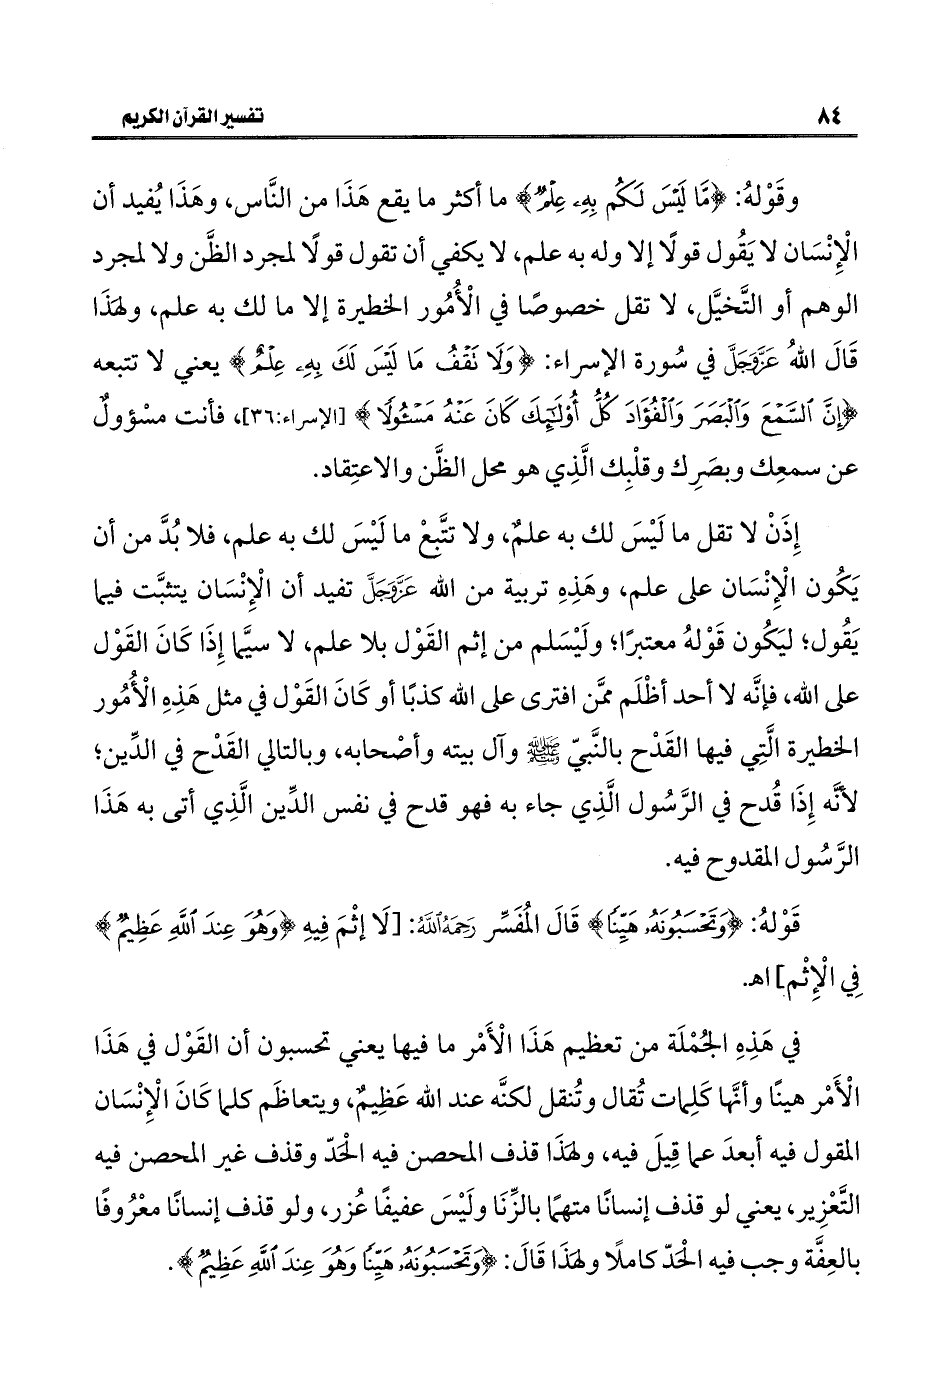 ٨٤ تفسير القرآن الكريم
وقَوْلهُ: ﴿مَّا لَيْسَ لَكُم بِهِۦ عِلْمٌ﴾ ما أكثر ما يقع هَذَا من النَّاس، وهَذَا يُفيد أن
الْإِنْسَان لا يَقُول قولًا إلا وله به علم، لا يكفي أن تقول قولًا لمجرد الظَّن ولا لمجرد
الوهم أو التَّخيَّل، لا تقل خصوصًا في الْأُمُور الخطيرة إلا ما لك به علم، ولهَذَا
قَالَ اللهُ عَزَّوَجَلَّ في سُورة الإسراء: ﴿وَلَا تَقْفُ مَا لَيْسَ لَكَ بِهِۦ عِلْمٌ﴾ يعني لا تتبعه
﴿إِنَّ ٱلسَّمْعَ وَٱلْبَصَرَ وَٱلْفُؤَادَ كُلُّ أُوْلَٰٓئِكَ كَانَ عَنْهُ مَسْـُٔولًا﴾ [الإسراء:٣٦]، فأنت مسْؤولٌ
عن سمعِك وبصَرِك وقلْبِك الَّذِي هو محل الظَّن والاعتِقاد.
إِذَنْ لا تقل ما لَيْسَ لك به علمٌ، ولا تتَّبعْ ما لَيْسَ لك به علم، فلا بُدَّ من أن
يَكُون الْإِنْسَان على علم، وهَذِهِ تربية من الله عَزَّوَجَلَّ تفيد أن الْإِنْسَان يتثبَّت فيما
يَقُول؛ ليَكُون قَوْلهُ معتبرًا؛ وليَسْلم من إثم القَوْل بلا علم، لا سيَّما إِذَا كَانَ القَوْل
على الله، فإنَّه لا أحد أظْلَم ممَّن افترى على الله كذبًا أو كَانَ القَوْل في مثل هَذِهِ الْأُمُور
الخطيرة الَّتِي فيها القَدْح بالنَّبيّ ﷺ وآل بيته وأصْحابه، وبالتالي القَدْح في الدين؛
لأنَّه إِذَا قُدح في الرَّسُول الَّذِي جاء به فهو قدح في نفس الدِّين الَّذِي أتى به هَذَا
الرَّسُول المقدوح فيه.
قَوْلهُ: ﴿وَتَحْسَبُونَهُۥ هَيِّنًا﴾ قَالَ المُفَسِّر رَحِمَهُ ٱللَّهُ: [لَا إِثْمَ فِيهِ ﴿وَهُوَ عِندَ ٱللَّهِ عَظِيمٌ﴾
فِي الْإِثْم] اهـ.
في هَذِهِ الجُمْلَة من تعظيم هَذَا الْأَمْر ما فيها يعني تحسبون أن القَوْل في هَذَا
الْأَمْر هينًا وأنَّها كَلِمات تُقال وتُنقل لكنَّه عند الله عَظِيمٌ، ويتعاظَم كلما كَانَ الْإِنْسَان
المقول فيه أبعدَ عما قِيلَ فيه، ولهَذَا قذف المحصن فيه الحَدّ وقذف غير المحصن فيه
التَّعْزِير، يعني لو قذف إنسانًا متهمًا بالزِّنَا ولَيْسَ عفيفًا عُزر، ولو قذف إنسانًا معْرُوفًا
بالعِفَّة وجب فيه الحَدّ كاملًا ولهَذَا قَالَ: ﴿وَتَحْسَبُونَهُۥ هَيِّنًا وَهُوَ عِندَ ٱللَّهِ عَظِيمٌ﴾.